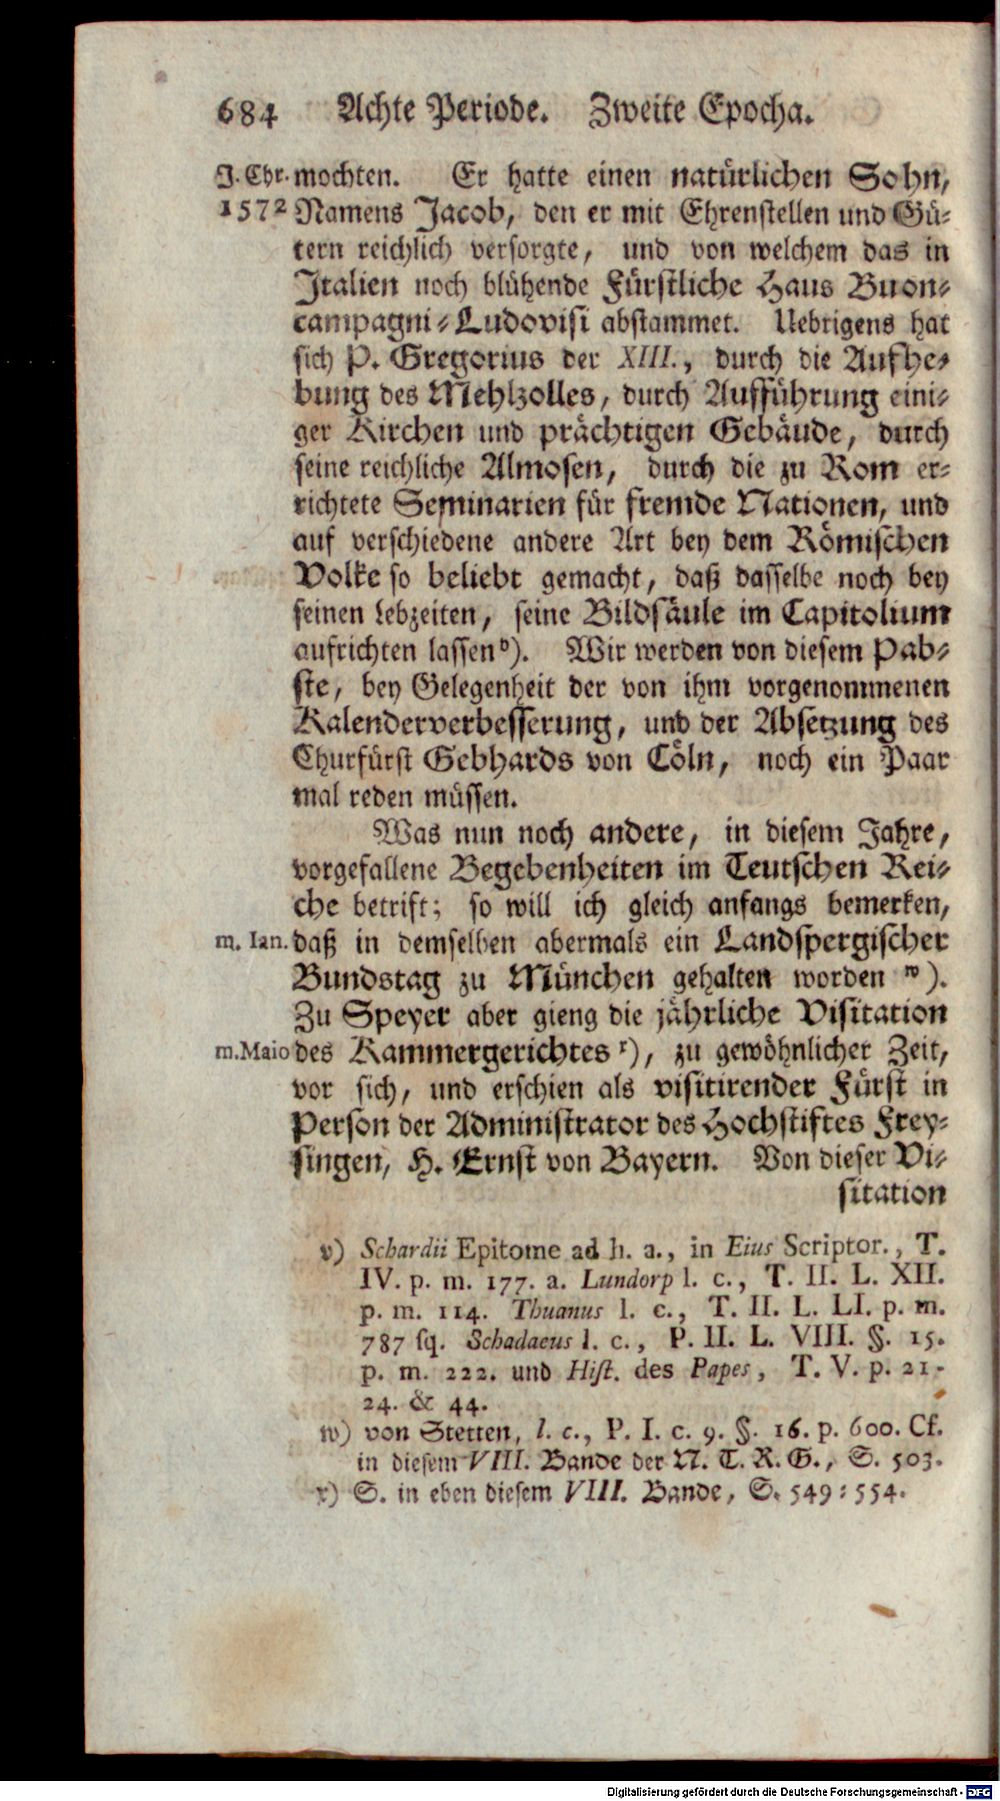 684 Achte Periode. Zweite Epocha.
J. Chr. mochten. Er hatte einen natürlichen Sohn,
1572 Namens Jacob, den er mit Ehrenstellen und Gü-
tern reichlich versorgte, und von welchem das in
Italien noch blühende Fürstliche Haus Buon-
campagni-Ludovisi abstammet. Uebrigens hat
sich P. Gregorius der XIII., durch die Aufhe-
bung des Mehlzolles, durch Aufführung eini-
ger Kirchen und prächtigen Gebäude, durch
seine reichliche Almosen, durch die zu Rom er-
richtete Seminarien für fremde Nationen, und
auf verschiedene andere Art bey dem Römischen
Volke so beliebt gemacht, daß dasselbe noch bey
seinen Lebzeiten, seine Bildsäule im Capitolium
aufrichten lassen v). Wir werden von diesem Pab-
ste, bey Gelegenheit der von ihm vorgenommenen
Kalenderverbesserung, und der Absetzung des
Churfürst Gebhards von Cöln, noch ein Paar
mal reden müssen.
Was nun noch andere, in diesem Jahre,
vorgefallene Begebenheiten im Teutschen Rei-
che betrift; so will ich gleich anfangs bemerken,
m. Ian. daß in demselben abermals ein Landspergischer
Bundstag zu München gehalten worden w).
Zu Speyer aber gieng die jährliche Visitation
m. Maio des Kammergerichtes x), zu gewöhnlicher Zeit,
vor sich, und erschien als visitirender Fürst in
Person der Administrator des Hochstiftes Frey-
singen, H. Ernst von Bayern. Von dieser Vi-
sitation
v) Schardii Epitome ad h. a., in Eius Scriptor., T.
IV. p. m. 177. a. Lundorp l. c., T. II. L. XII.
p. m. 114. Thuanus l. c., T. II. L. LI. p. m.
787 sq. Schadaeus l. c., P. II. L. VIII. §. 15.
p. m. 222. und Hist. des Papes, T. V. p. 21-
24. & 44.
w) von Stetten, l. c., P. I. c. 9. §. 16. p. 600. Cf.
in diesem VIII. Bande der N. T. R. G., S. 503.
x) S. in eben diesem VIII. Bande, S. 549-554.
Digitalisierung gefördert durch die Deutsche Forschungsgemeinschaft - DFG